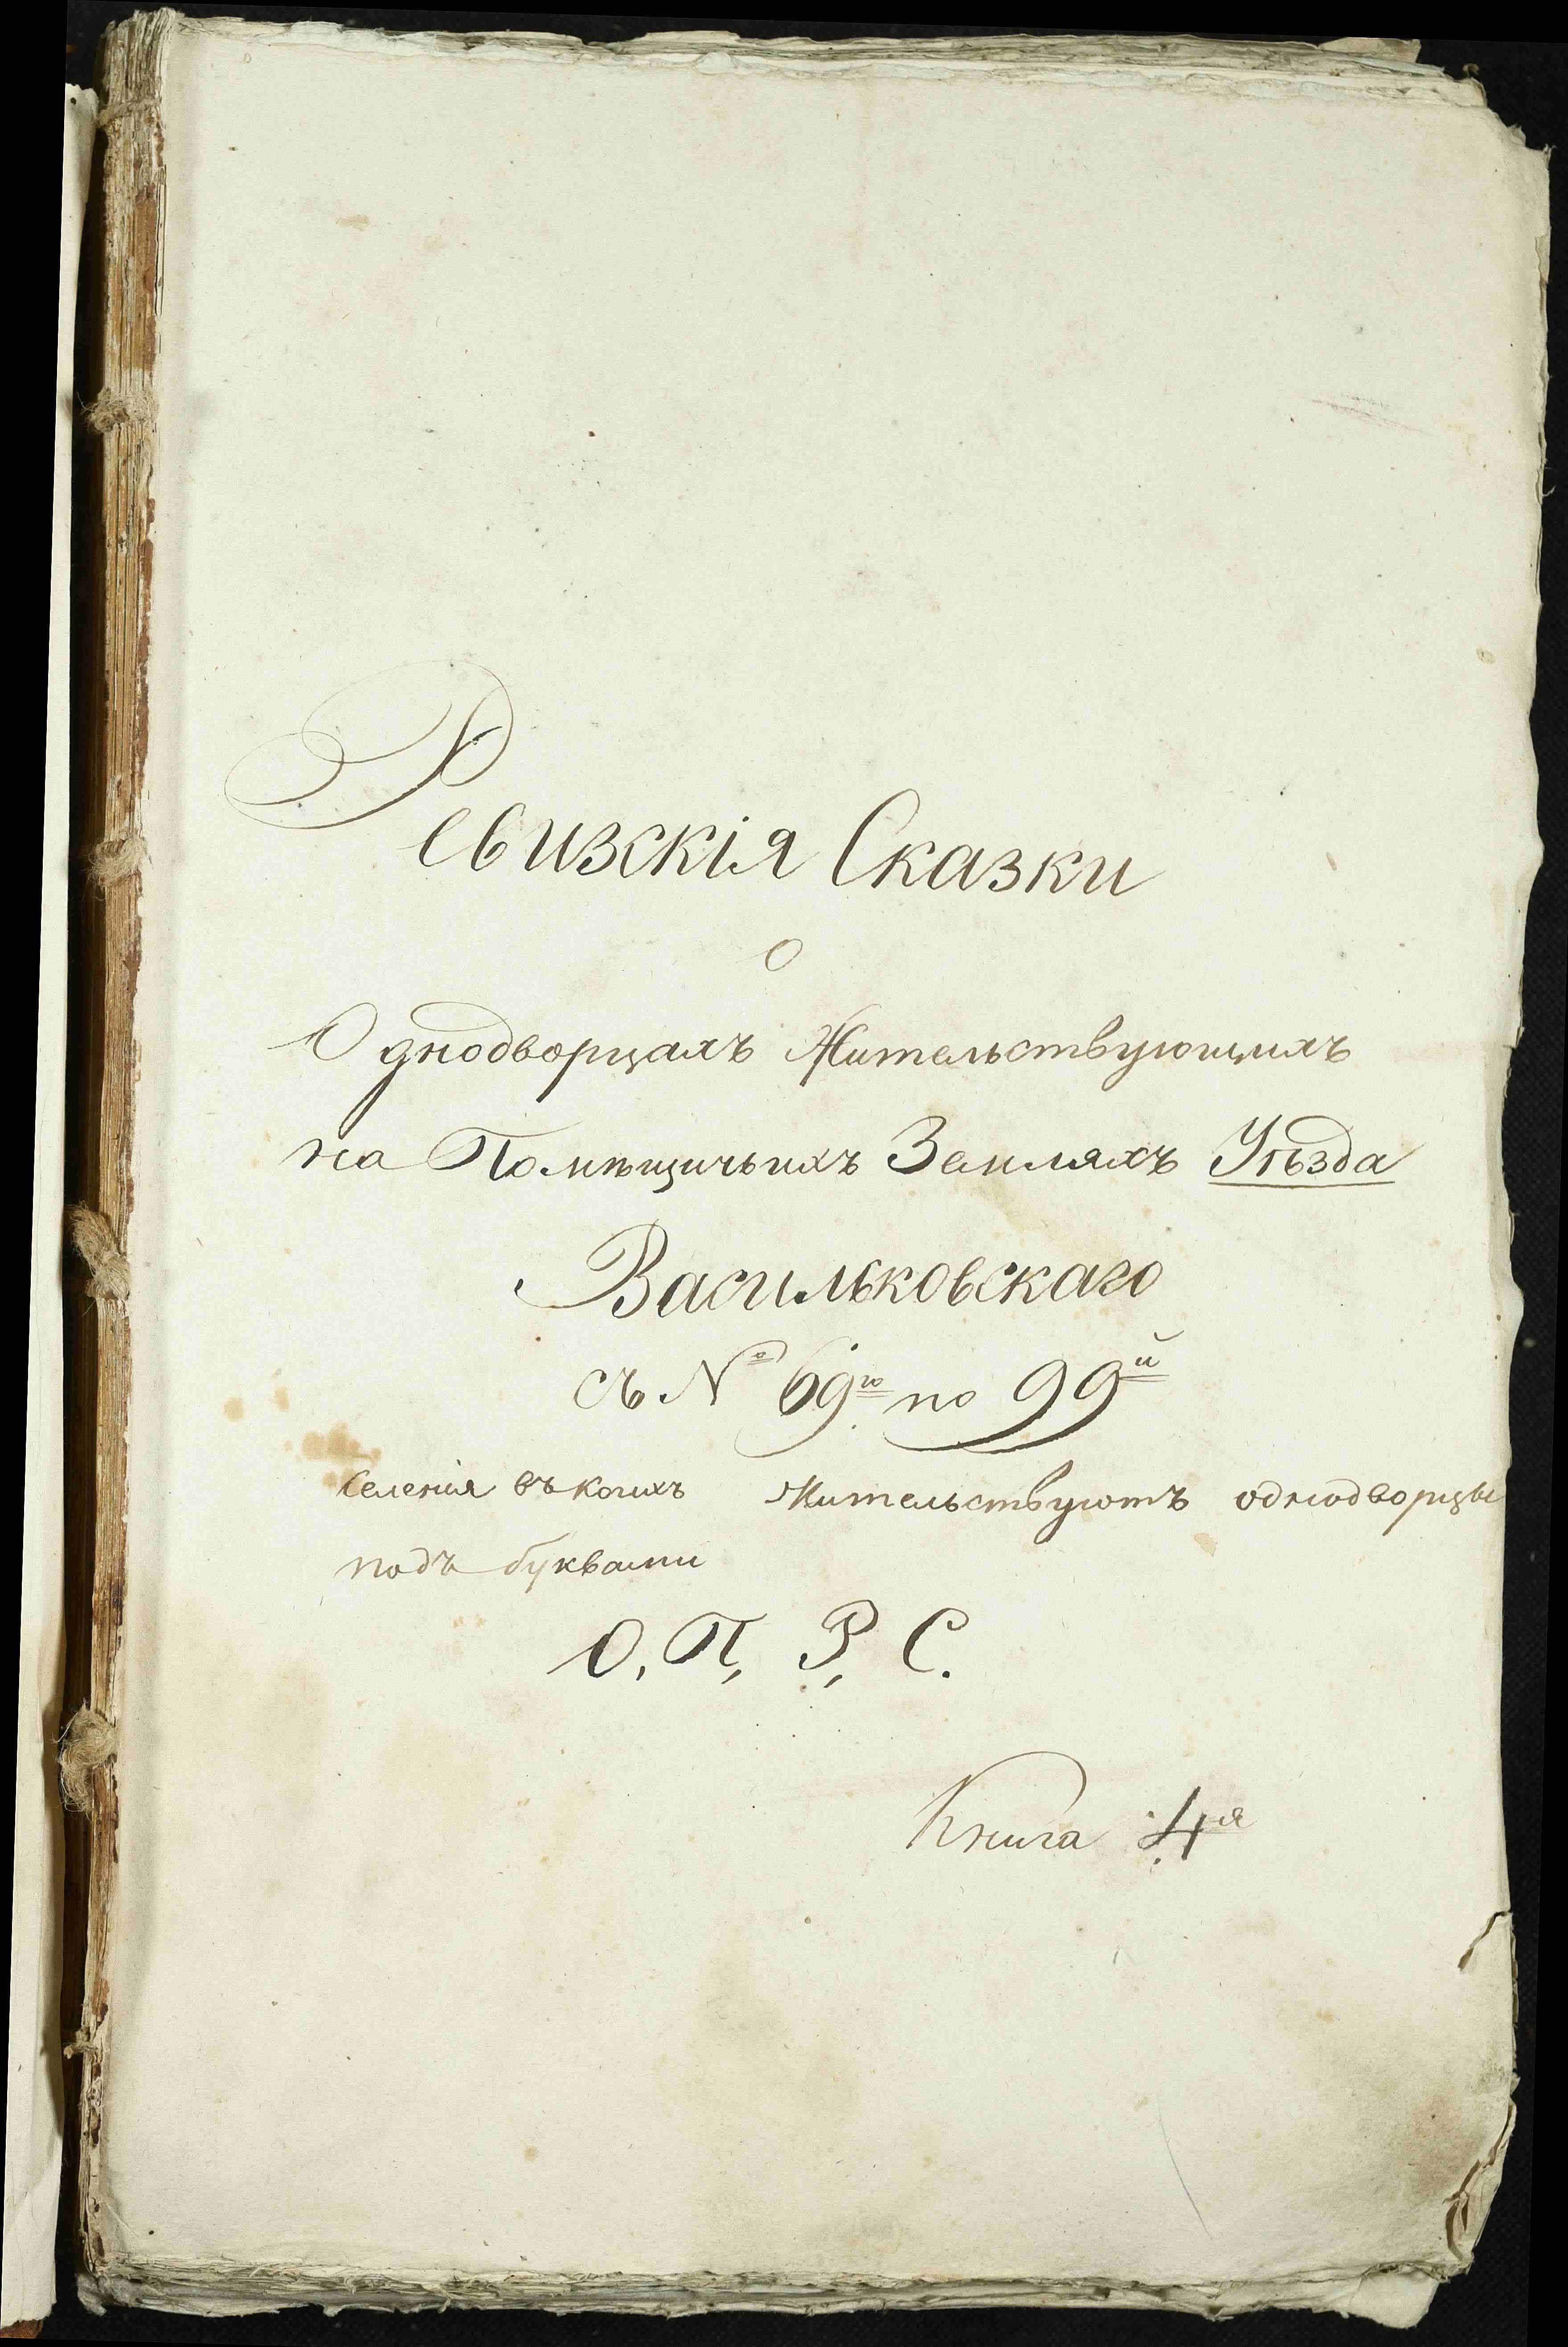 Ревизскія Сказки
о
Однодворцахъ Жительствующихъ
на Помѣщичьихъ Земляхъ Уѣзда
Васильковскаго
съ №º 69го по 99й
Селенія въ коихъ жительствуютъ однодворцы
подъ буквами
О, П, Р, С.
Книга 4я